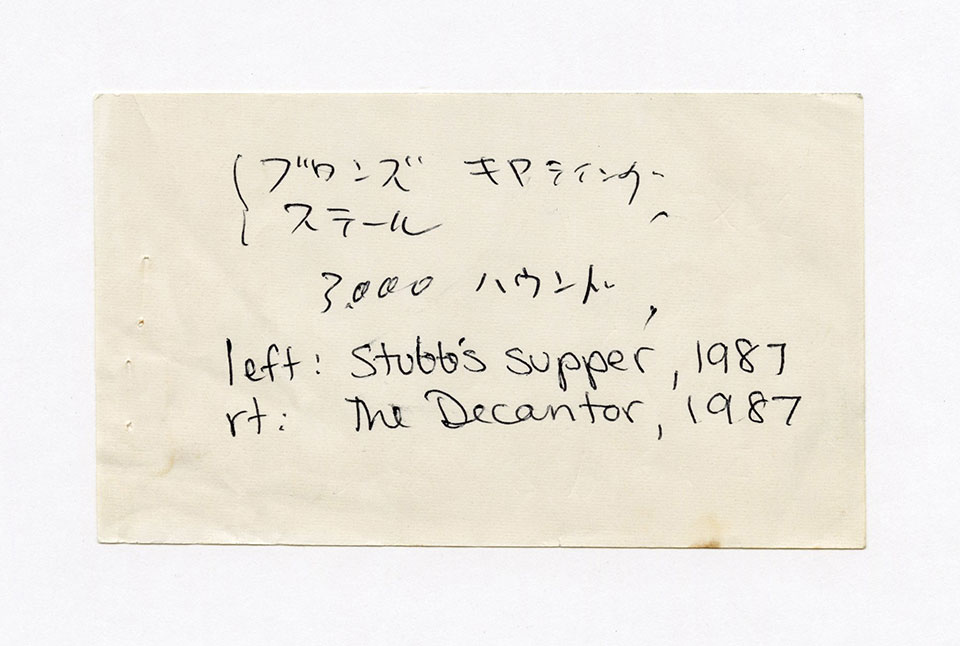 ブロンズ
ステール
3.000 ハウンド,
left: Stubb's supper, 1987
rt: The Decantor, 1987